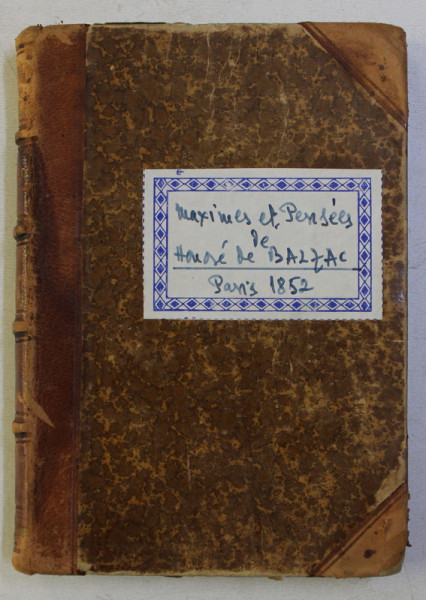 Maximes et Pensées
de
Honoré de BALZAC
Paris 1852